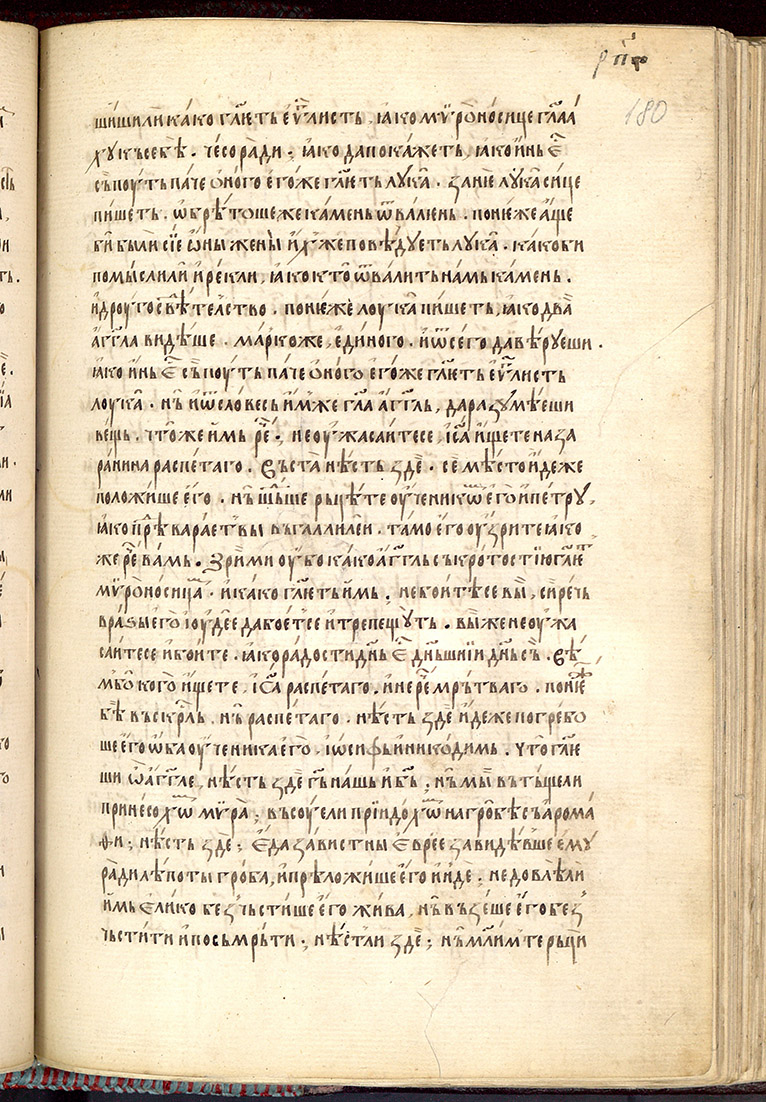 рп҃ѳ
180
шишили како гл҃еть еѵⷢ҇листь · ꙗко мѵроносице гл҃аа
хꙋ къ себѣ · чесо ради ; ꙗко да покажеть, ꙗко инь єⷭ҇
съ поуть паче ѻного егоже гл҃еть лꙋка · зане лꙋка сице
пишеть · ѡбрѣтоше же камень ѿвалень · понеже аще
би были сїе ѡны жены ихже поведꙋеть лꙋка · како би
помыслили и рекли, ꙗко кто ѿвалить намь камень ·
и дроуго свⷣѣтелство · понеже лоука пишеть, ꙗко два
агг҃ла видѣше · марко же, единого · и ѿ сего да вѣрꙋеши ·
ꙗко инь єⷭ҇ съ поуть паче ѻного егоже гл҃еть еѵⷢ҇листь
лоука · нь и ѿ словесь имже гл҃а агг҃ль, да разꙋмѣеши
вещь · что же имь рⷱ҇е ; не оужасаитесе, іс҃а ищете наза
ранина распетаго · въста нѣсть зде · се мѣсто идеже
положише его · нь шⷣьше рьцѣте оученикѡⷨ его и петрꙋ,
ꙗко прѣвараеть вы въ галилеи · тамо его оузрите ꙗко
же рⷱ҇е вамь · Зри ми оубо како агг҃ль съ кротостїю гл҃еть
мѵроносицаⷨ · и како гл҃еть имь ; не боитесе вы, сирѣчь
врази его іоудее да боетсе и трепещꙋть · вы же не оужа
саитесе и боите · ꙗко радости дн҃ь єⷭ҇ дн҃ьшнїи дн҃ь съ · Вѣ
мь бо кого ищете, іс҃а распетаго · и не рⷱ҇е мрьтваго · понеⷤ
бѣ въскр҃сль · нь распетаго · нѣсть зде идеже погребо
ше его ѡба оученика его · іѡсифь и никодимь · что гл҃е
ши ѡ агг҃ле, нѣсть зде гь҃ нашь и бь҃ ; нь мы вътьщели
принесохѡⷨ мѵра ; въсоуе ли прїидохѡⷨ на гробь съ арома
фи ; нѣсть зде ; Єда завистны євреє завидѣвше ємꙋ
ради лѣпоты гроба, и прѣложише его инде ; не довлѣли
имь єлико безьчьстише его жива, нь възеше его без
чьстити и по сьмрьти ; нѣст ли зде ; нь мл҃им те рьци